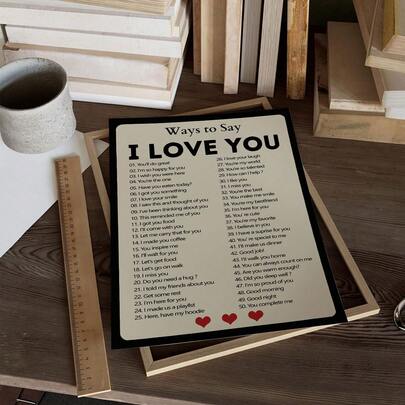 Ways to Say
I LOVE YOU
01. You'll do great
02. I'm so happy for you
03. I wish you were here
04. You're the one
05. Have you eaten today?
06. I got you something
07. I love your smile
08. I saw this and thought of you
09. I've been thinking about you
10. This reminded me of you
11. I got you food
12. I'll come with you
13. Let me carry that for you
14. I made you coffee
15. You inspire me
16. I'll wait for you
17. Let's get food
18. Let's go on walk
19. I miss you
20. Do you need a hug ?
21. I told my friends about you
22. Get some rest
23. I'm here for you
24. I made us a playlist
25. Here, have my hoodie
26. I love your laugh
27. You're my world
28. You're so talented
29. How can I help ?
30. I like you
31. I miss you
32. You're the best
33. You make me smile
34. You're my boyfriend
35. I'm here for you
36. You're cute
37. You're my favorite
38. I believe in you
39. I have a suprise for you
40. You're special to me
41. I'll make us dinner
42. Good job!
43. I'll walk you home
44. You can always count on me
45. Are you warm enough?
46. Did you sleep well ?
47. I'm so proud of you
48. Good morning
49. Good night
50. You complete me